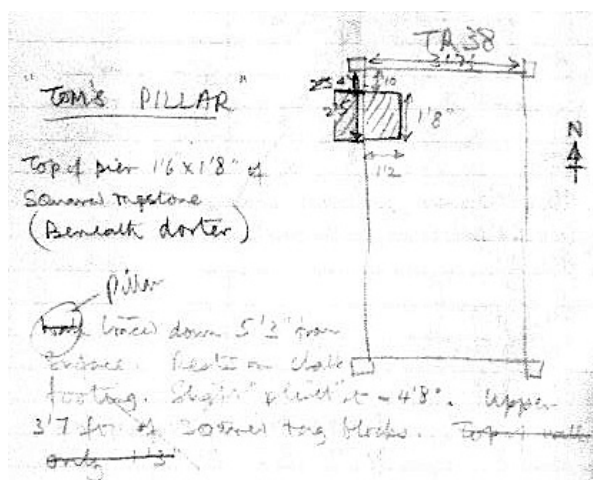 TA 38
"TOM'S PILLAR"
10
2'5
1'8"
1'2
N
Top of pier 1'6 x 1'8" of
Squared ragstone
(Beneath dorter)
pillar
traced down 5'2" from
surface. Rests on chalk
footing. Slight "plinth" at - 4'8". Upper
3'7 of squared rag blocks. Top of wall
only 1'3"